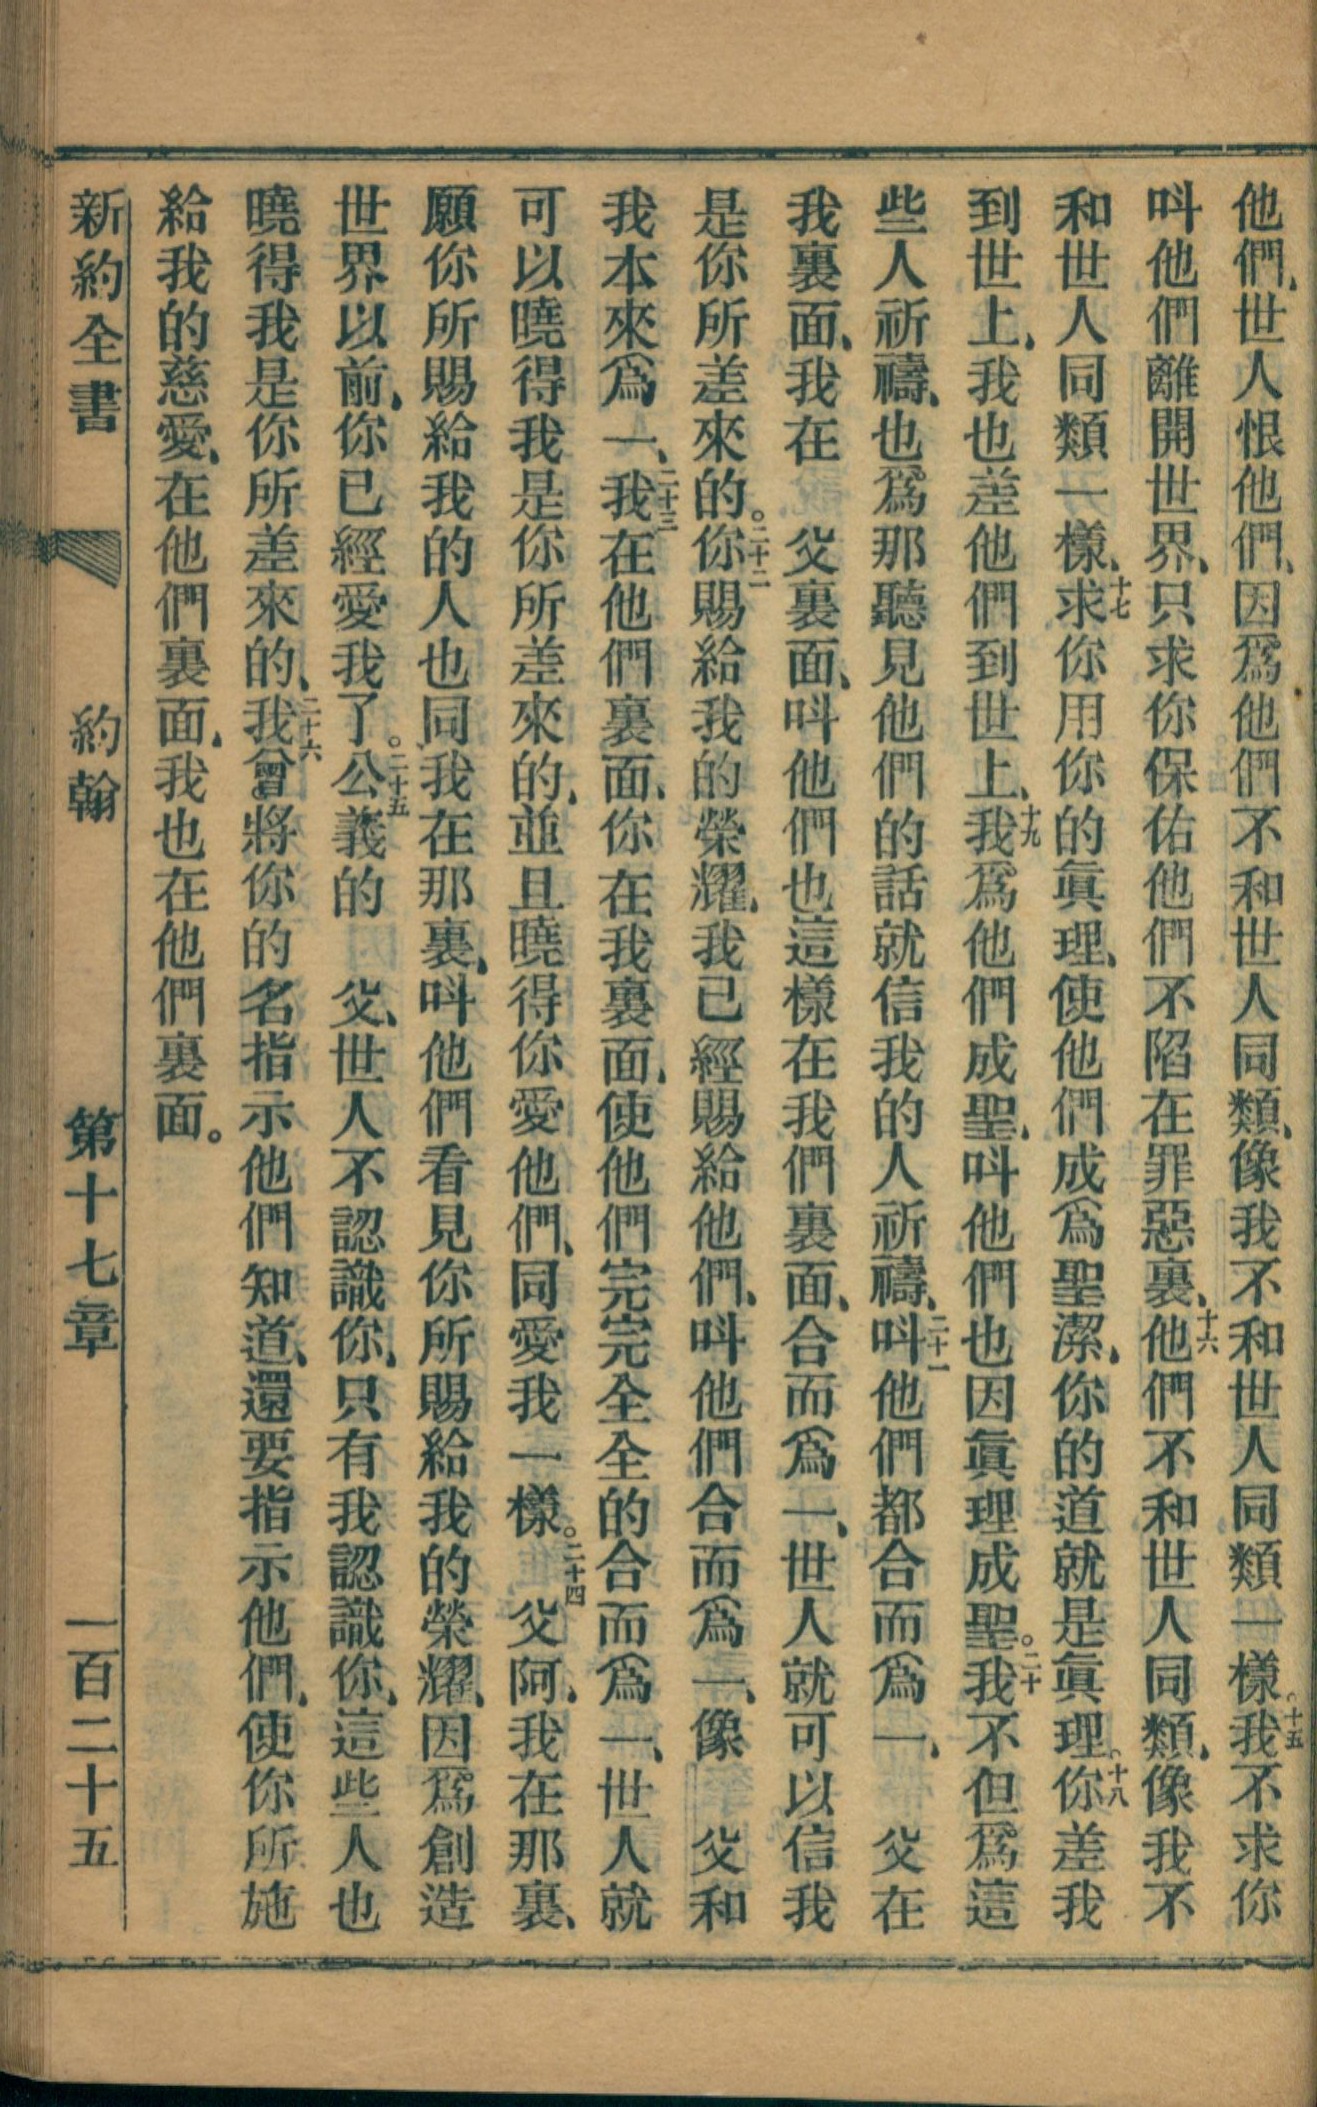 他們、世人恨他們、因爲他們不和世人同類、像我不和世人同類一樣。十五我不求你
呌他們離開世界、只求你保佑他們不陷在罪惡裏、十六他們不和世人同類、像我不
和世人同類一樣、十七求你用你的眞理、使他們成爲聖潔、你的道就是眞理。十八你差我
到世上、我也差他們到世上、十九我爲他們成聖、呌他們也因眞理成聖。二十我不但爲這
些人祈禱、也爲那聽見他們的話就信我的人祈禱、二十一呌他們都合而爲一、　父在
我裏面、我在　父裏面、呌他們也這樣在我們裏面、合而爲一、世人就可以信我
是你所差來的。二十二你賜給我的榮耀、我已經賜給他們、呌他們合而爲一、像　父和
我本來爲一、二十三我在他們裏面、你在我裏面、使他們完完全全的合而爲一、世人就
可以曉得我是你所差來的、並且曉得你愛他們、同愛我一樣。二十四　父阿、我在那裏、
願你所賜給我的人也同我在那裏、呌他們看見你所賜給我的榮耀、因爲創造
世界以前、你已經愛我了。二十五公義的　父、世人不認識你、只有我認識你、這些人也
曉得我是你所差來的、二十六我曾將你的名指示他們知道、還要指示他們、使你所施
給我的慈愛、在他們裏面、我也在他們裏面。
新約全書　約翰　第十七章　一百二十五